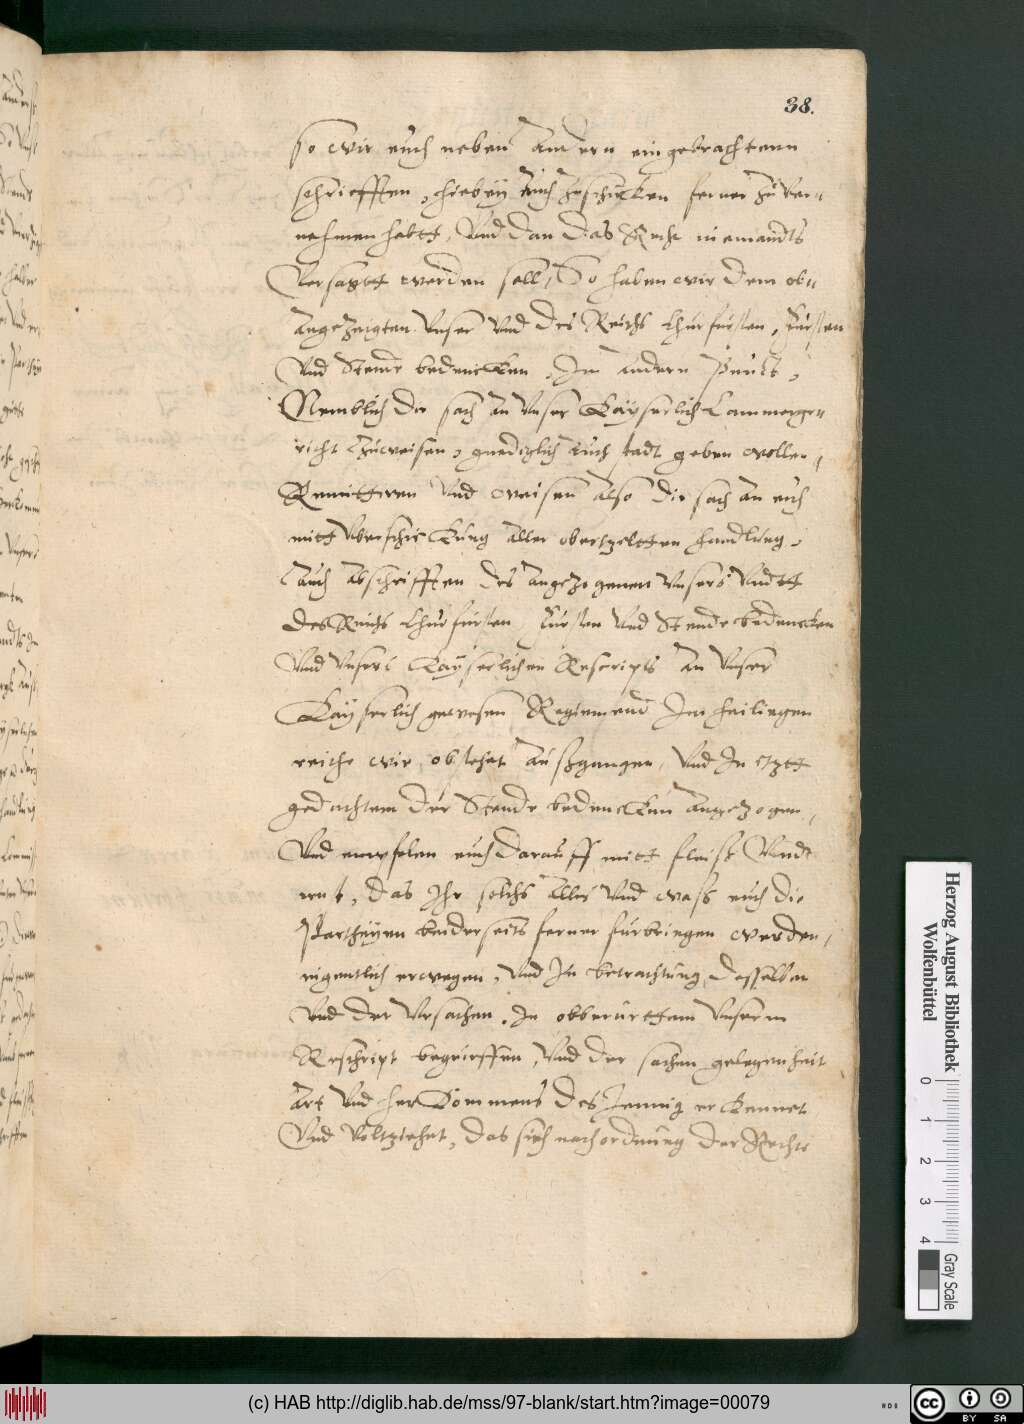 38.
so wir euch neben andern eingebrachtenn
schriefften, hiebey auch zuschicken ferner zuver=
nehmen habtt, Vnd dan das Recht niemandts
Versagtt werden soll, So haben wir dem ob=
angezeigten vnser vnd des Reichs Churfursten, Fursten
vnd Stende bedencken, Im andern Punct,
Nemblich die sach an vnser Kayserlich Cammerge=
richt zuweisen, gnediglich auch stadt geben wollen,
Remittiren vnd weisen also die sach an euch
mitt vberschickung aller obertzeltten handlung,
auch abschrifften des angezogenen vnsers vndtt
des Reichs Churfursten, Fursten vnd Stende bedencken
vnd vnsers Kayserlichen Rescripts an vnser
Kayserlich gewesen Regiemend Im heiligen
reiche wie obstehet außgangen, vnd In itztt
gedachtem der Stende bedencken angezogen,
Vnd empfelen euch darauff mitt fleiß Vndt
ernst, das Ihr solchs alles vnd waß euch die
Partheyen beiderseits ferner furbringen werden,
eigentlich erwegen, vnd In betrachtung desselben
vnd der vrsachen, In obberurttem vnserm
Reschript begrieffen, vnd der sachen gelegenheit
art vnd herkommens des Jennig erkennet
Vnd voltziehet, das sich nach ordnung der Rechte
Herzog August Bibliothek
Wolfenbüttel
0 1 2 3 4
Gray Scale
(c) HAB http://diglib.hab.de/mss/97-blank/start.htm?image=00079
cc BY SA